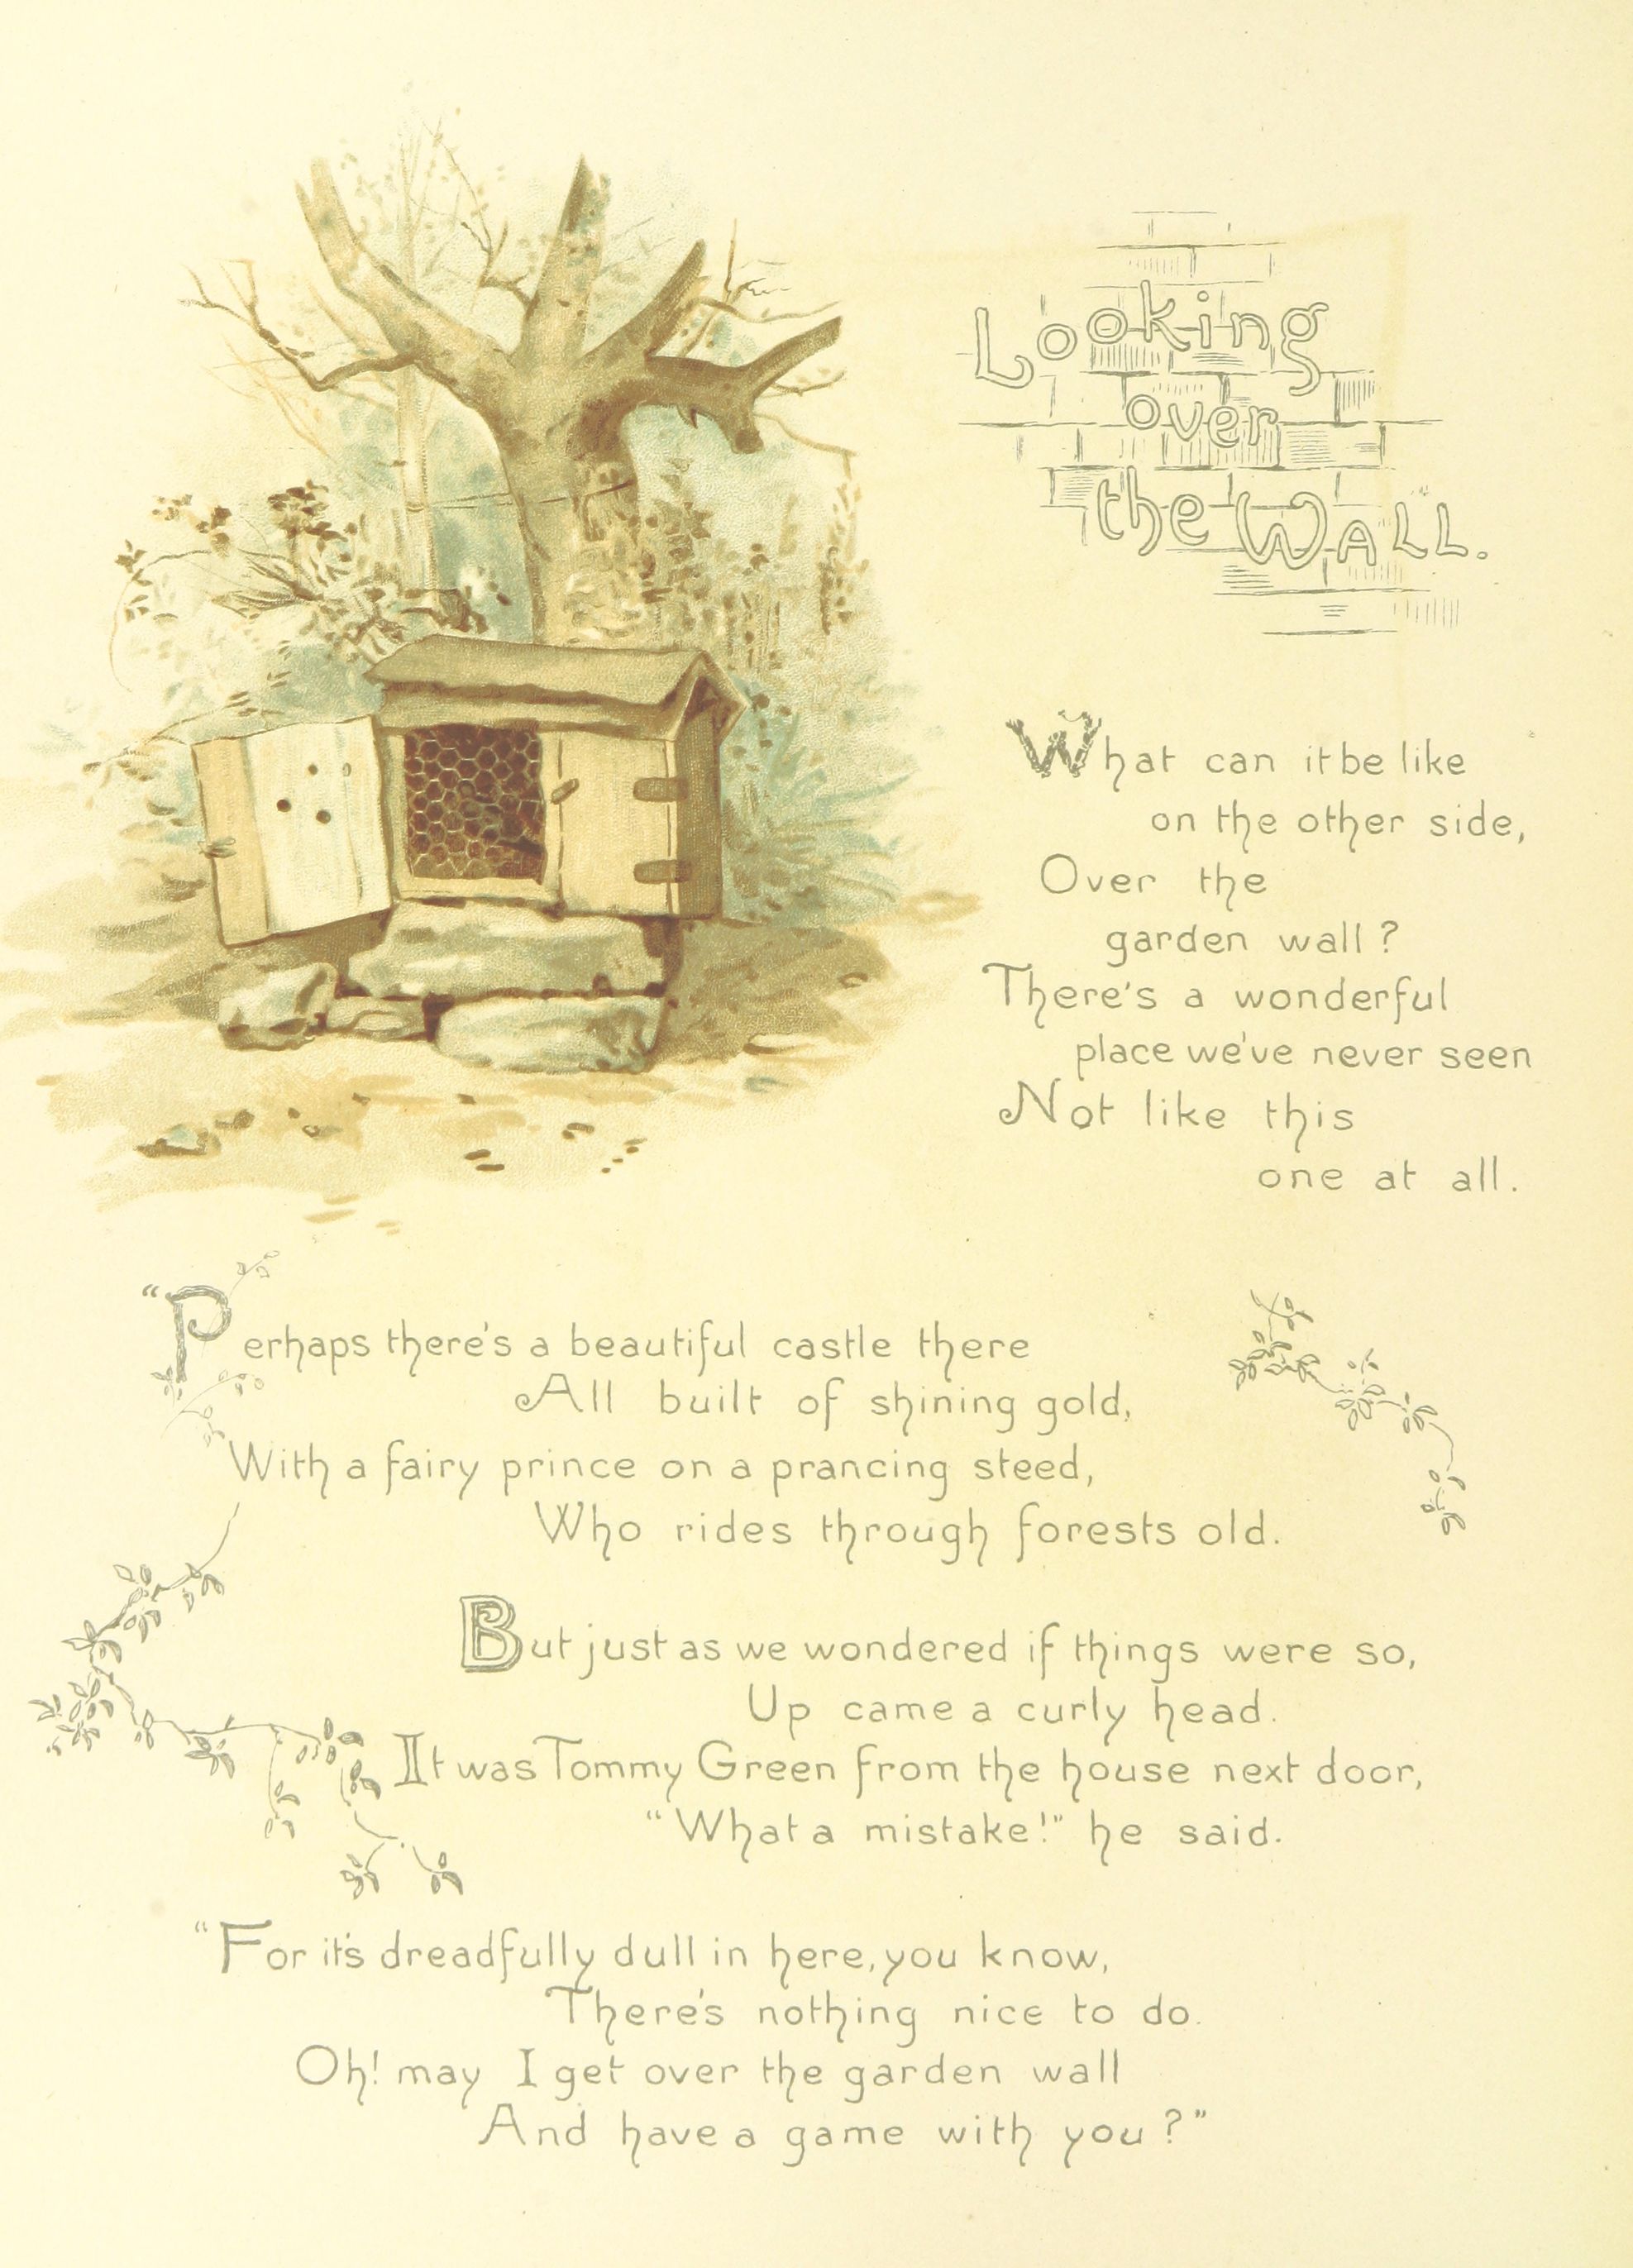 Looking
over
the WALL.
What can it be like
on the other side,
Over the
garden wall?
There's a wonderful
place we've never seen
Not like this
one at all.
"Perhaps there's a beautiful castle there
All built of shining gold,
With a fairy prince on a prancing steed,
Who rides through forests old.
But just as we wondered if things were so,
Up came a curly head.
It was Tommy Green from the house next door,
"What a mistake!" he said.
"For it's dreadfully dull in here, you know,
There's nothing nice to do.
Oh! may I get over the garden wall
And have a game with you?"